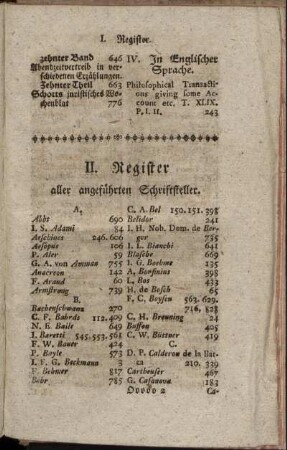 I. Register.
zehnter Band 646
Abendzeitvertreib in ver-
schiedenen Erzählungen.
Zehnter Theil 663
Schotts juristisches Wo-
chenblat 776
IV. In Englischer
Sprache.
Philosophical Transacti-
ons giving some Ac-
count etc. T. XLIX.
P. I. II. 243
II. Register
aller angeführten Schriftsteller.
A.
Abbt 690
I. S. Adami 84
Aeschines 246. 606
Aesopus 106
P. Aler 59
G. A. von Amman 755
Anacreon 142
F. Arand 60
Armstrong 739
B.
Bachenschwanz 270
C. F. Bahrdt 112. 409
N. E. Baile 649
I. Baretti 545. 553. 561
F. W. Bauer 424
P. Bayle 573
I. F. G. Beckmann 3
F. Behmer 817
Behr 785
C. A. Bel 150. 151. 398
Belidor 241
I. H. Nob. Dom. de Ber-
ger 735
I. L. Bianchi 641
Blasche 669
I. G. Boehme 135
A. Bonfinius 398
L. Bos 433
H. de Bosch 65
F. C. Boysen 563. 629.
716. 828
C. H. Breuning 24
Buffon 405
C. W. Büttner 419
C.
D. P. Calderon de la Barca
210. 339
Cartheuser 467
G. Casanova 183
Ovodo 2
Ca-